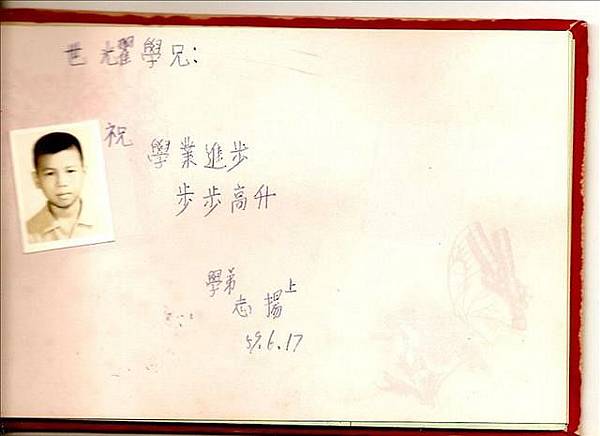 世耀學兄:
祝
學業進步
步步高升
學弟
志揚上
59.6.17